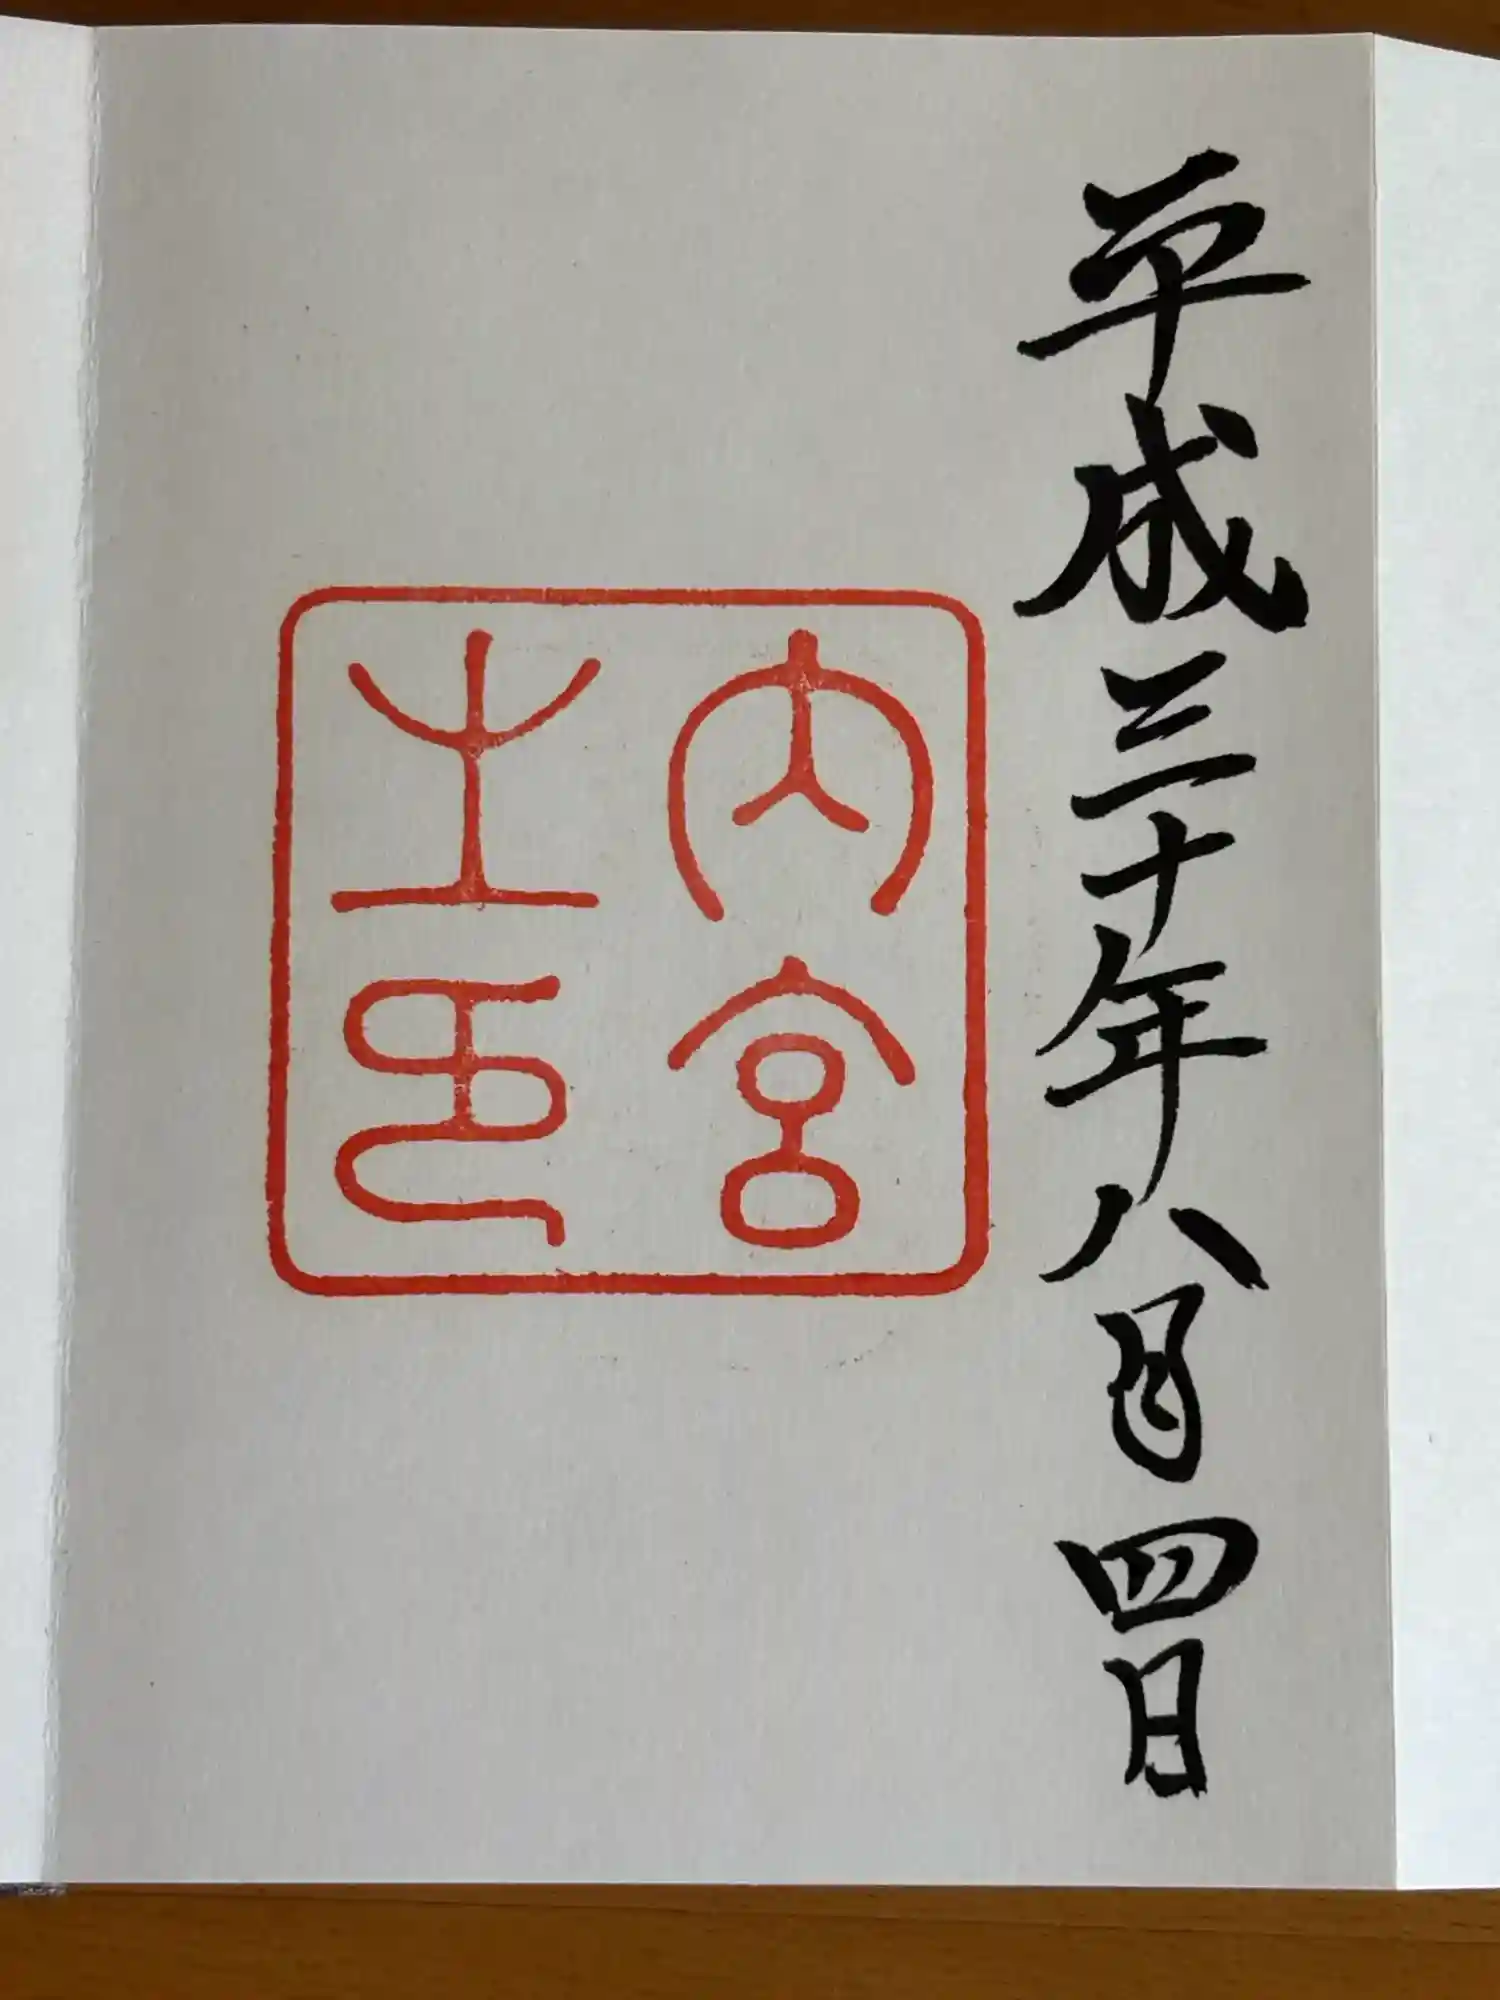 平成三十年八月四日
内宮
之印